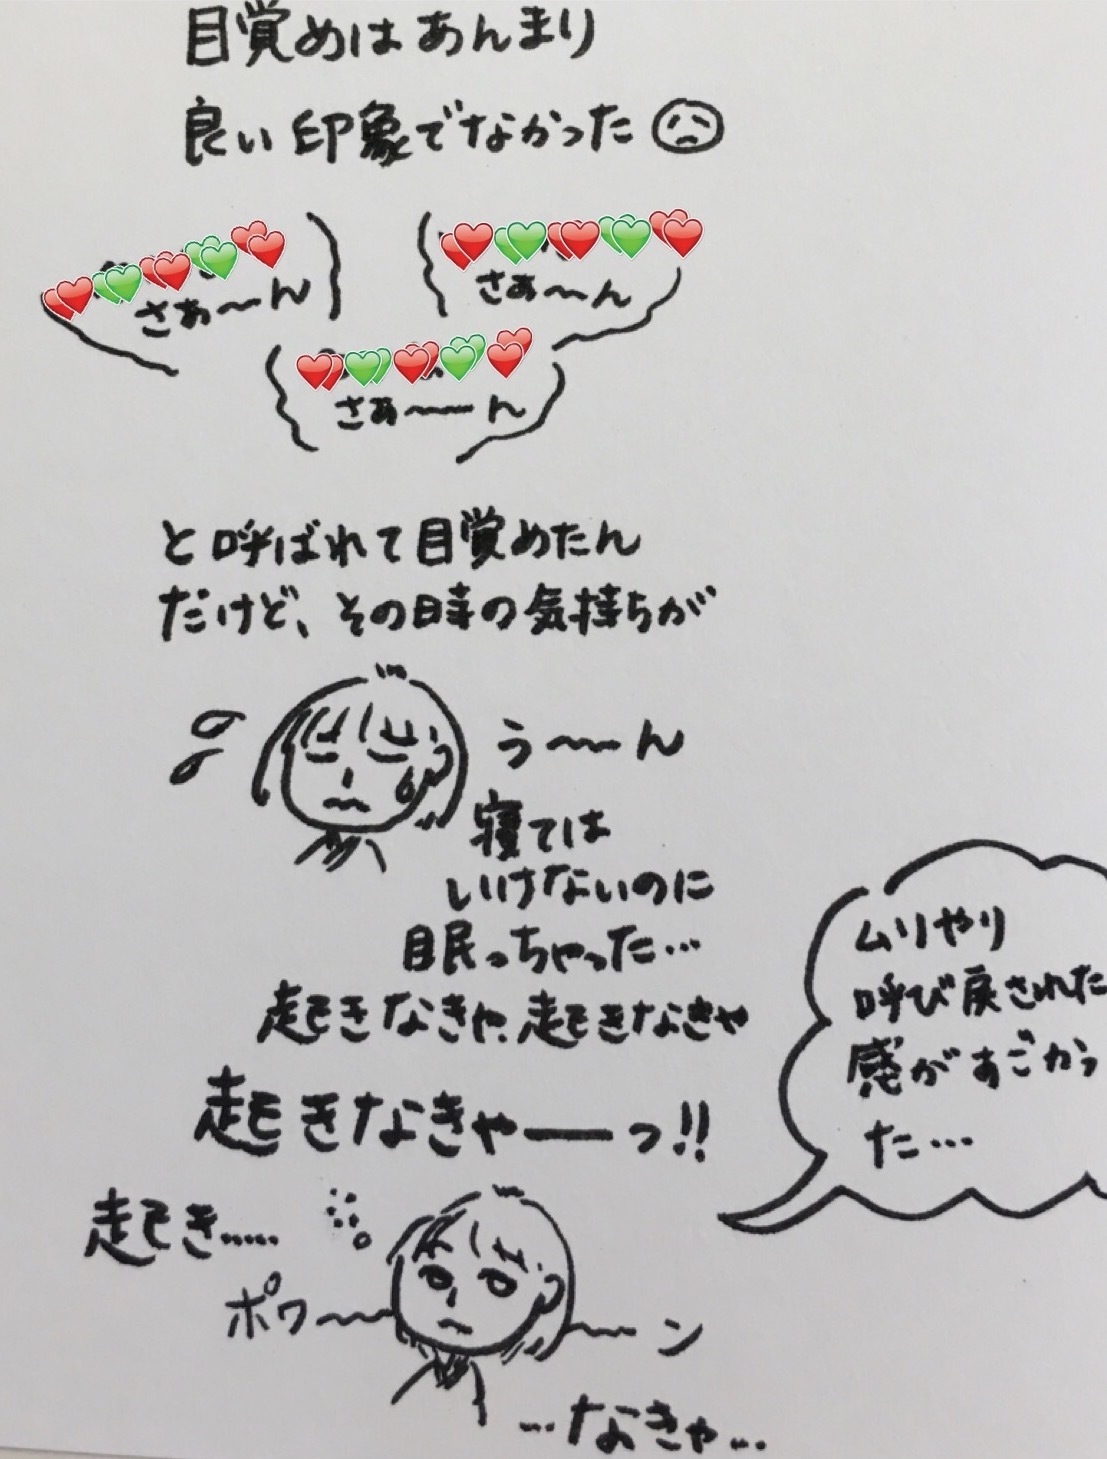 目覚めはあんまり
良い印象でなかった
さぁ〜〜ん
さぁ〜〜ん
さぁ〜〜ん
と呼ばれて目覚めたん
だけど、その時の気持ちが
う〜〜ん
寝ては
いけないのに
眠っちゃった…
起きなきゃ、起きなきゃ
起きなきゃーっ!!
ムリやり
呼び戻された
感がすごかっ
た…
起き……
ポワ〜〜
〜〜ン
…なきゃ…